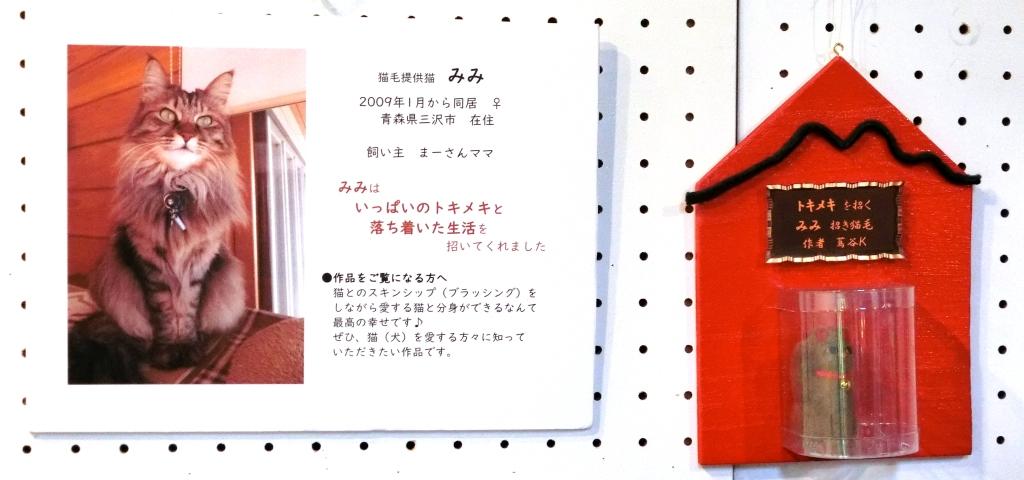 猫毛提供猫 みみ
2009年1月から同居 ♀
青森県三沢市 在住
飼い主 まーさんママ
みみは
いっぱいのトキメキと
落ち着いた生活を
招いてくれました
●作品をご覧になる方へ
猫とのスキンシップ（ブラッシング）を
しながら愛する猫と分身ができるなんて
最高の幸せです♪
ぜひ、猫（犬）を愛する方々に知って
いただきたい作品です。
トキメキ を招く
みみ 招き猫毛
作者 蔦谷K